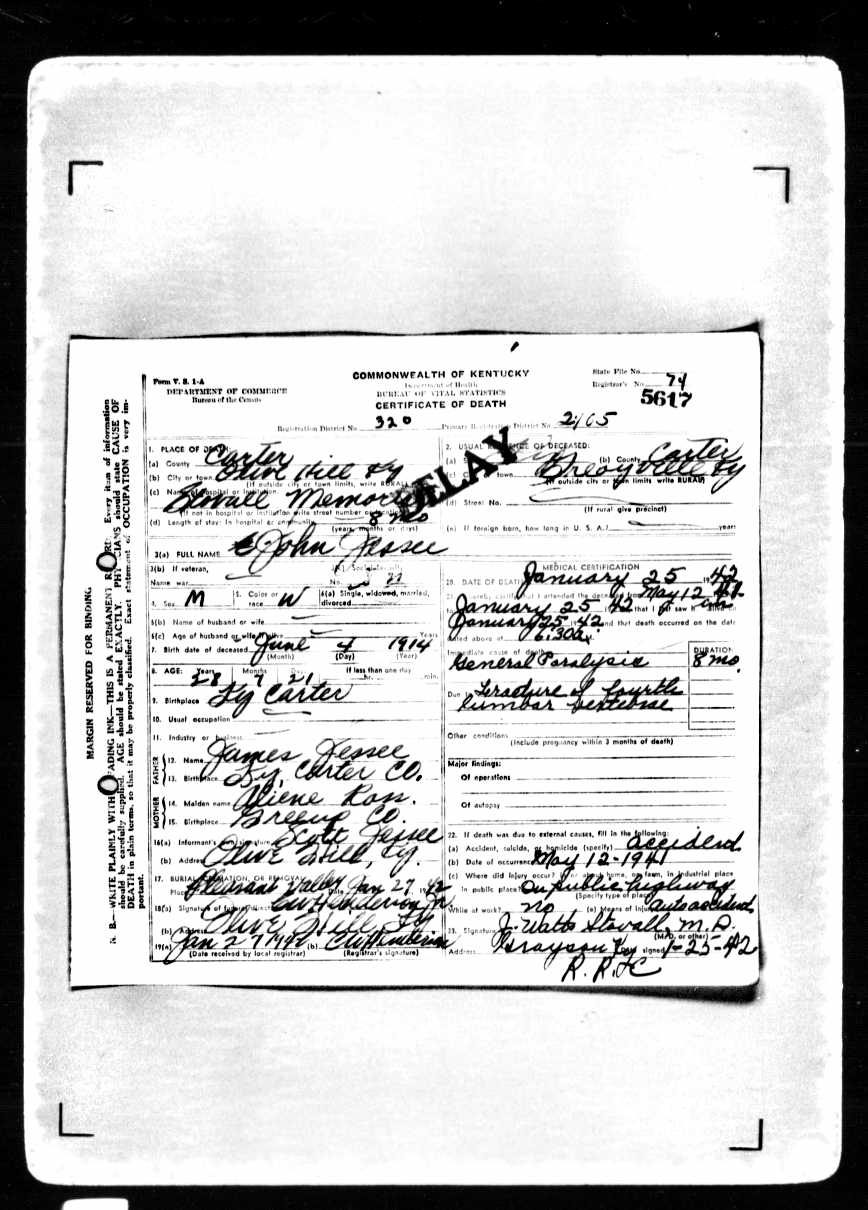 Form V. S. 1-A
DEPARTMENT OF COMMERCE
Bureau of the Census
COMMONWEALTH OF KENTUCKY
Department of Health
BUREAU OF VITAL STATISTICS
CERTIFICATE OF DEATH
State File No.
Registrar's No. 74
5617
Registration District No. 320
Primary Registration District No. 2165
DELAY
1. PLACE OF DEATH:
(a) County Carter
(b) City or town Olive Hill Ky
(If outside city or town limits, write RURAL)
(c) Name of hospital or institution:
Stovall Memorial
(If not in hospital or institution write street number or location)
(d) Length of stay: In hospital or community 8 mo
(years, months or days)
2. USUAL RESIDENCE OF DECEASED:
(a) Ky (b) County Carter
(c) town Ky
(If outside city or town limits write RURAL)
(d) Street No.
(If rural give precinct)
(e) If foreign born, how long in U. S. A.? years
3(a) FULL NAME John Jessee
3(b) If veteran,
Name war
3(c) Social Security
No.
4. Sex M
5. Color or race W
6(a) Single, widowed, married, divorced
6(b) Name of husband or wife
6(c) Age of husband or wife if alive Years
7. Birth date of deceased June 4 1914
(Month) (Day) (Year)
8. AGE: Years Months Days If less than one day
28 7 21 hr. min.
9. Birthplace Ky Carter
10. Usual occupation
11. Industry or business
FATHER
12. Name James Jessee
13. Birthplace Ky, Carter Co.
MOTHER
14. Maiden name
15. Birthplace Greenup Co.
16(a) Informant's own signature Scott Jessee
(b) Address Olive Hill, Ky.
17. BURIAL, CREMATION, OR REMOVAL
Place Pleasant Valley Date Jan 27, 42
18(a) Signature of funeral director
(b) Address Olive Hill Ky
19(a) Jan 27 1942 (b)
(Date received by local registrar) (Registrar's signature)
MEDICAL CERTIFICATION
20. DATE OF DEATH January 25 1942
21. I hereby certify that I attended the deceased from May 12 41
to January 25 42 that I last saw h im alive on
January 25 42 and that death occurred on the date
stated above at 6:30 a.
Immediate cause of death
General Paralysis
DURATION
8 mo.
Due to Fracture of fourth
lumbar vertebrae
Other conditions
(Include pregnancy within 3 months of death)
Major findings:
Of operations
Of autopsy
22. If death was due to external causes, fill in the following:
(a) Accident, suicide, or homicide (specify) accident
(b) Date of occurrence May 12-1941
(c) Where did injury occur? In or about home, on farm, in industrial place
In public place? On public highway
(Specify type of place)
While at work? no (e) Means of injury auto accident
23. Signature J. Watts Stovall, M.D.
(M.D. or other)
Address Grayson Ky Date signed 1-25-42
MARGIN RESERVED FOR BINDING
N. B.—WRITE PLAINLY WITH UNFADING INK—THIS IS A PERMANENT RECORD. Every item of information
should be carefully supplied. AGE should be stated EXACTLY. PHYSICIANS should state CAUSE OF
DEATH in plain terms, so that it may be properly classified. Exact statement of OCCUPATION is very im-
portant.